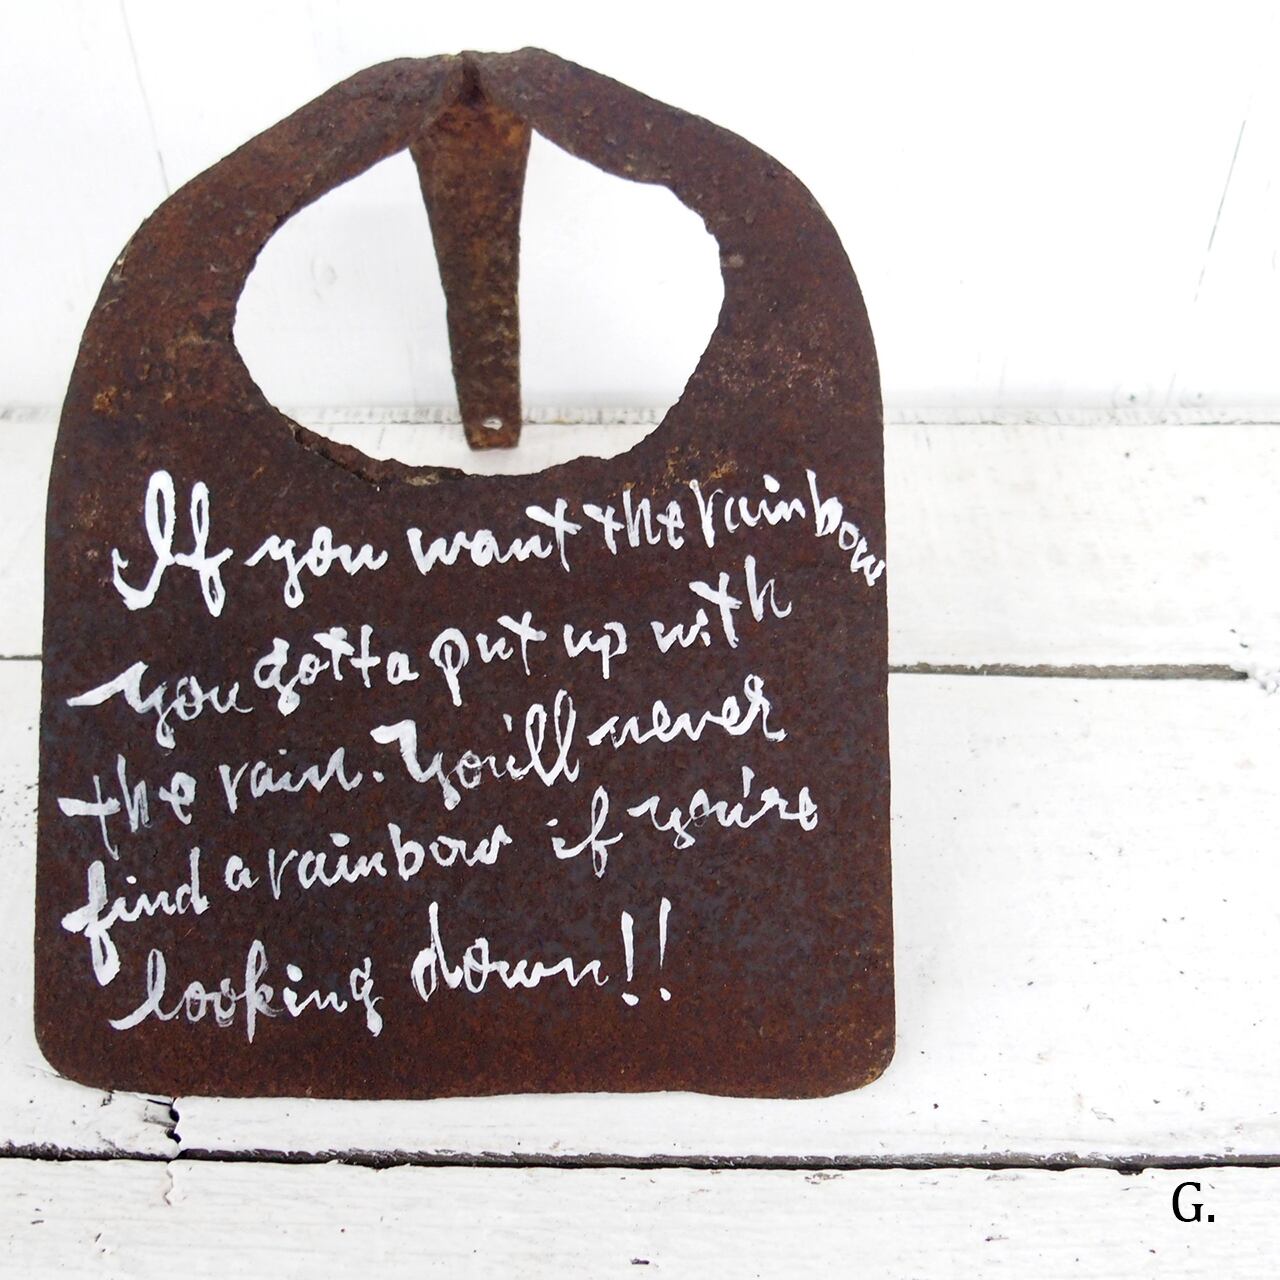 If you want the rainbow
you gotta put up with
the rain. You'll never
find a rainbow if you're
looking down!!
G.